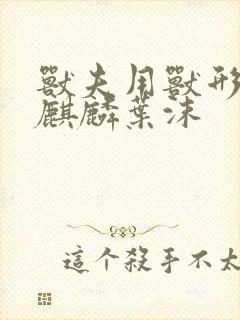 獸夫用獸形
麒麟葉沫
這个殺手不太